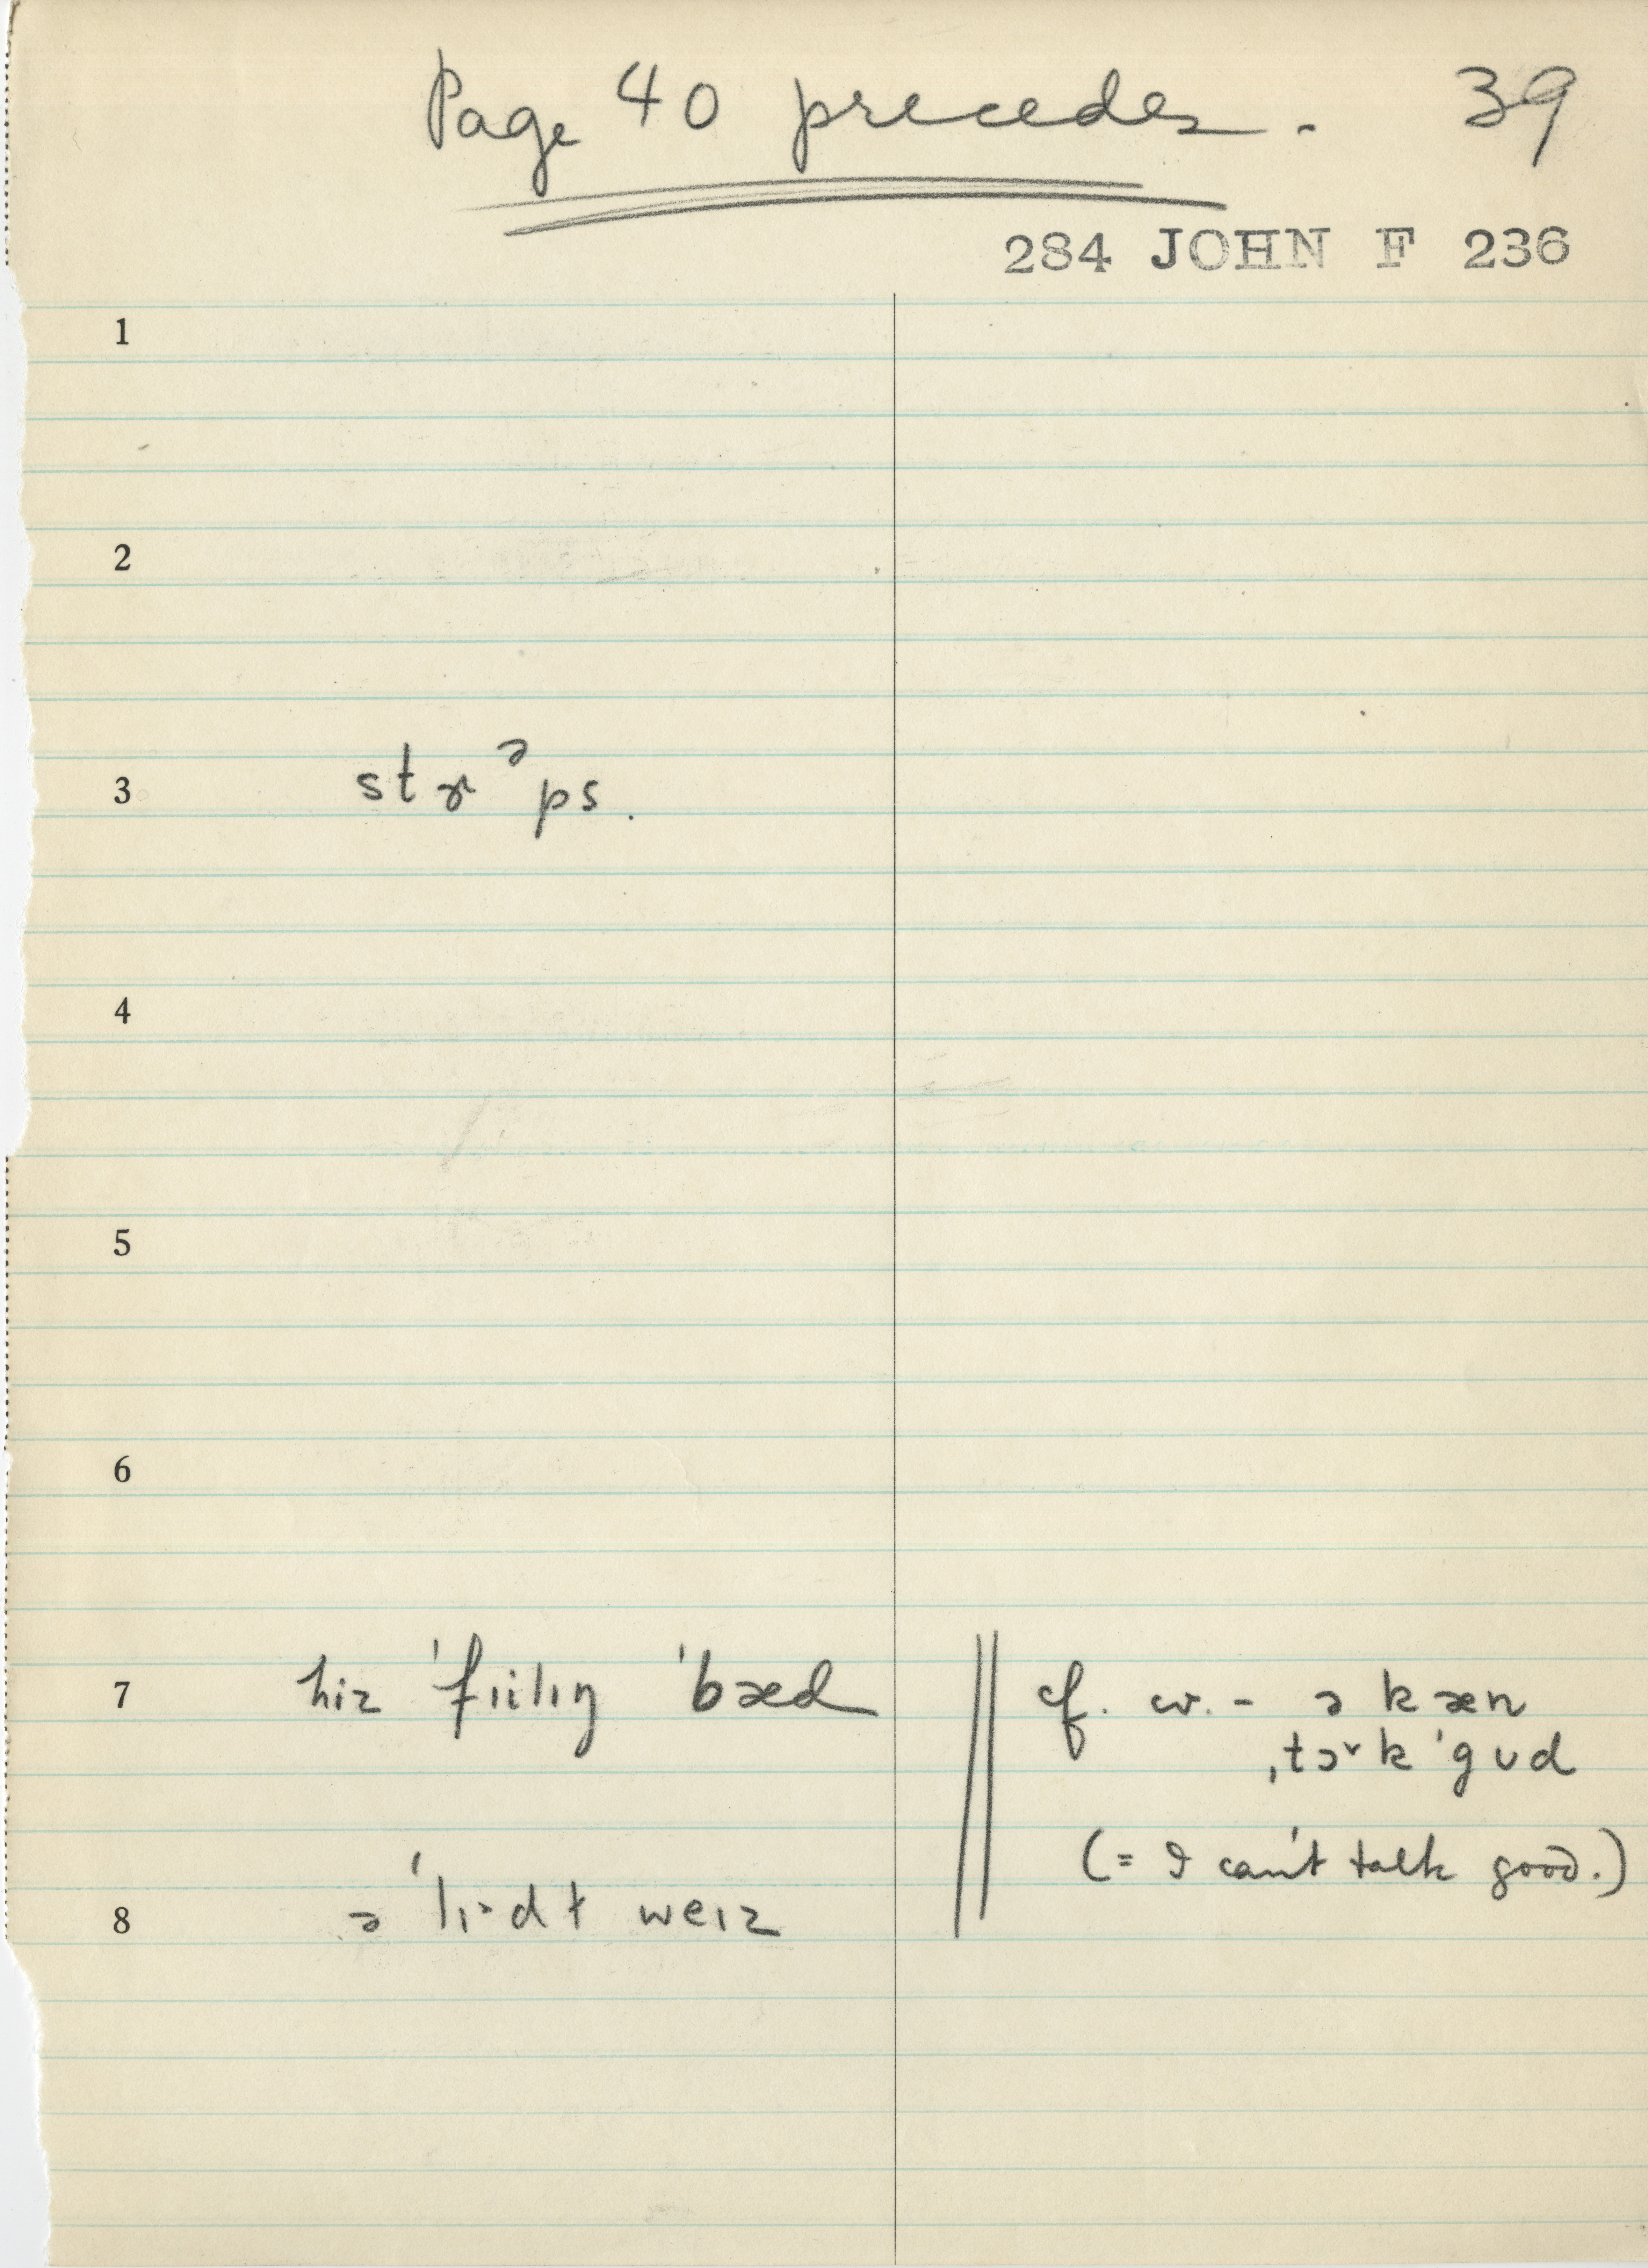 Page 40 precedes. 39
284 JOHN F 236
1
2
3 stɚᵊps.
4
5
6
7 hiz ˈfɪilɪŋ ˈbæd || cf. w. - ə kæn
ˌtɔ˅k ˈgʊd
(= I can't talk good.)
8 ə ˈlɪ·dɫ weɪz